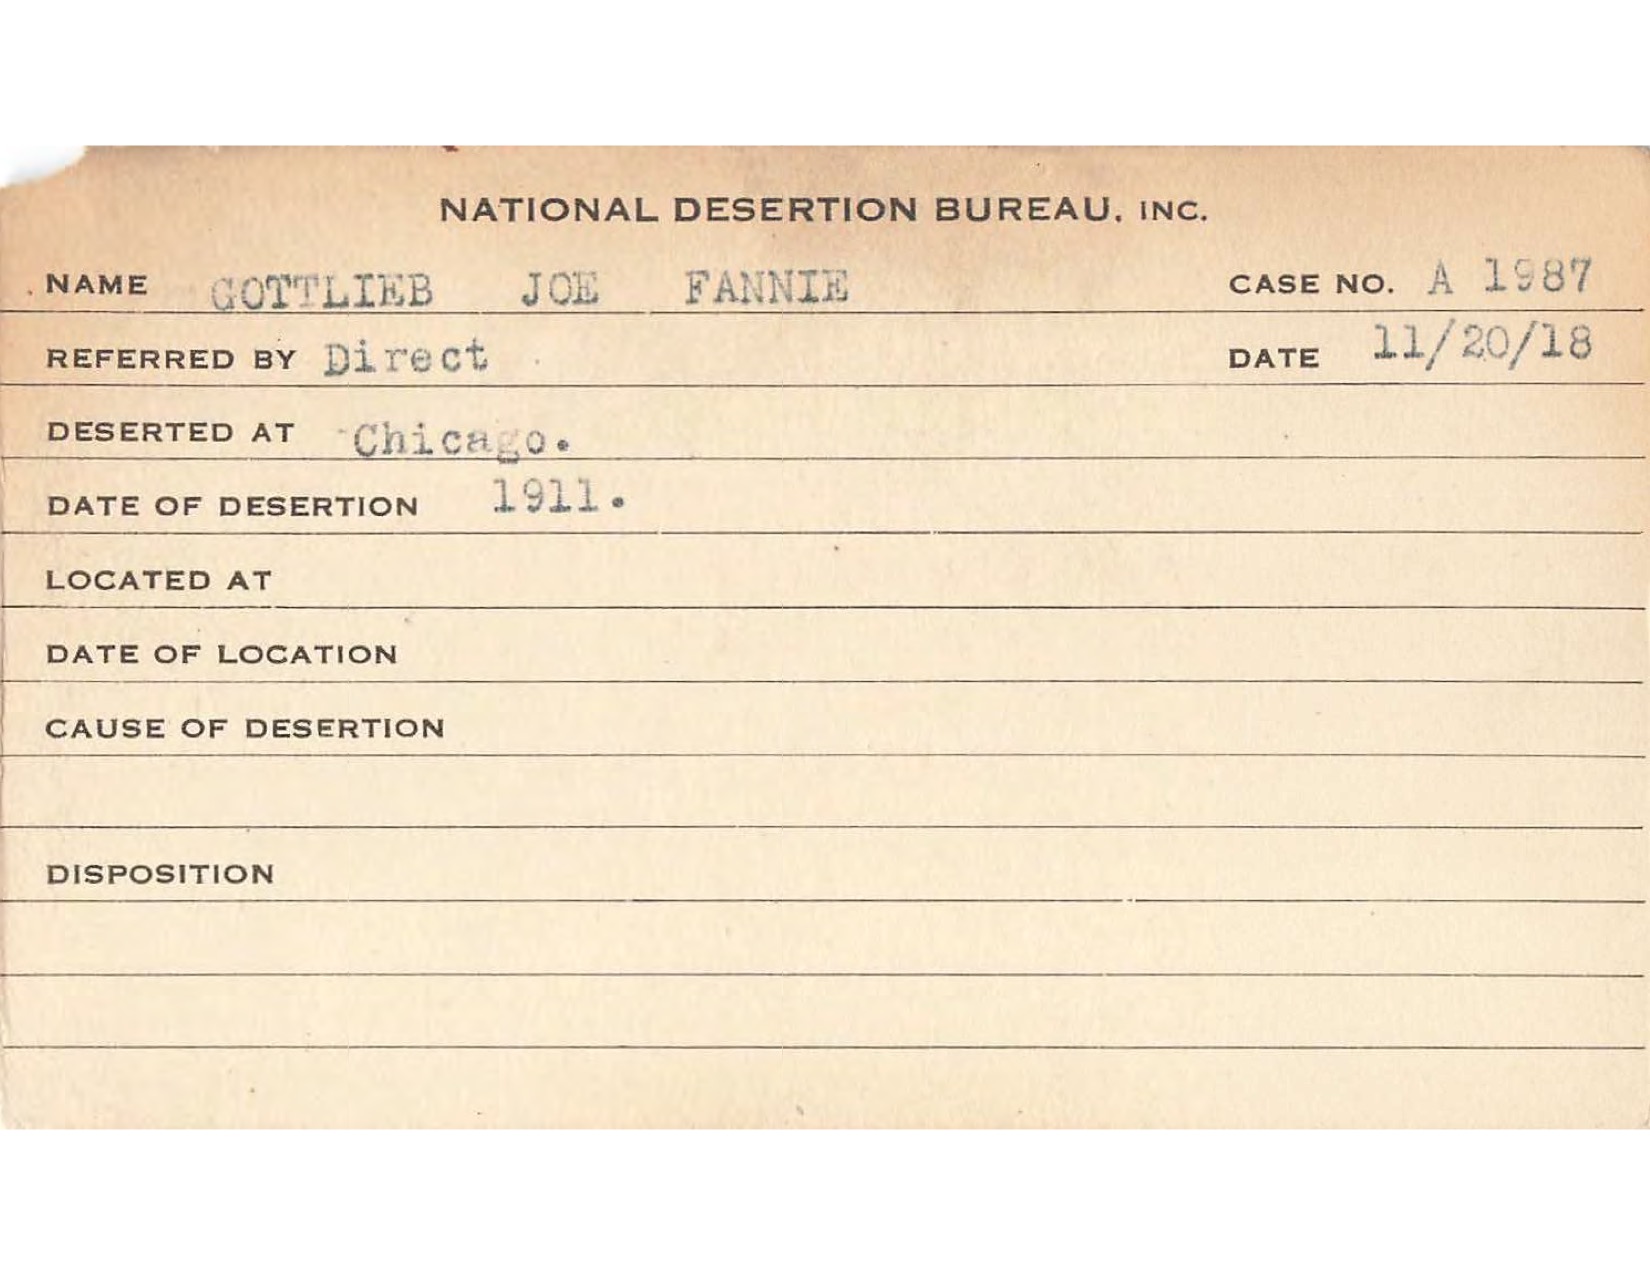 NATIONAL DESERTION BUREAU, INC.
NAME GOTTLIEB JOE FANNIE CASE NO. A 1987
REFERRED BY Direct DATE 11/20/18
DESERTED AT Chicago.
DATE OF DESERTION 1911.
LOCATED AT
DATE OF LOCATION
CAUSE OF DESERTION
DISPOSITION